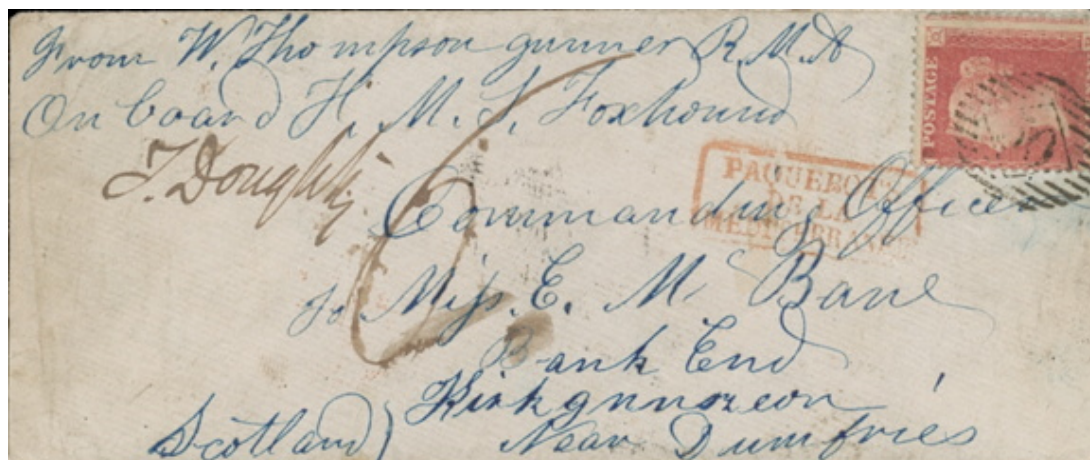 From W. Thompson gunner R.M.A
On board H. M. S. Foxhound
T. Doughty
Commanding Officer
PAQUEBOTS
DE LA
MEDITERRANEE
POSTAGE
to Miss. E. Mc Bane
Bank End
Kirkgunnzeon
Near Dumfries
Scotland)